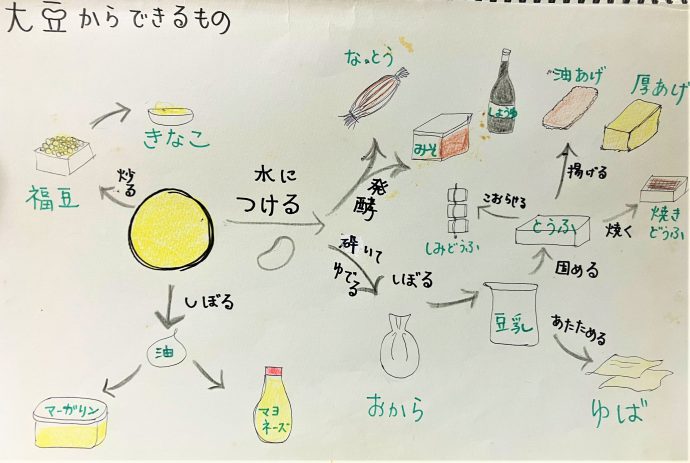 大豆からできるもの
なっとう
しょうゆ
油あげ
厚あげ
きなこ
みそ
福豆
炒る
水に
つける
発酵
揚げる
こおらせる
とうふ
焼く
焼き
どうふ
しみどうふ
砕いて
ゆでる
しぼる
固める
しぼる
油
豆乳
あたためる
マーガリン
マヨ
ネーズ
おから
ゆば